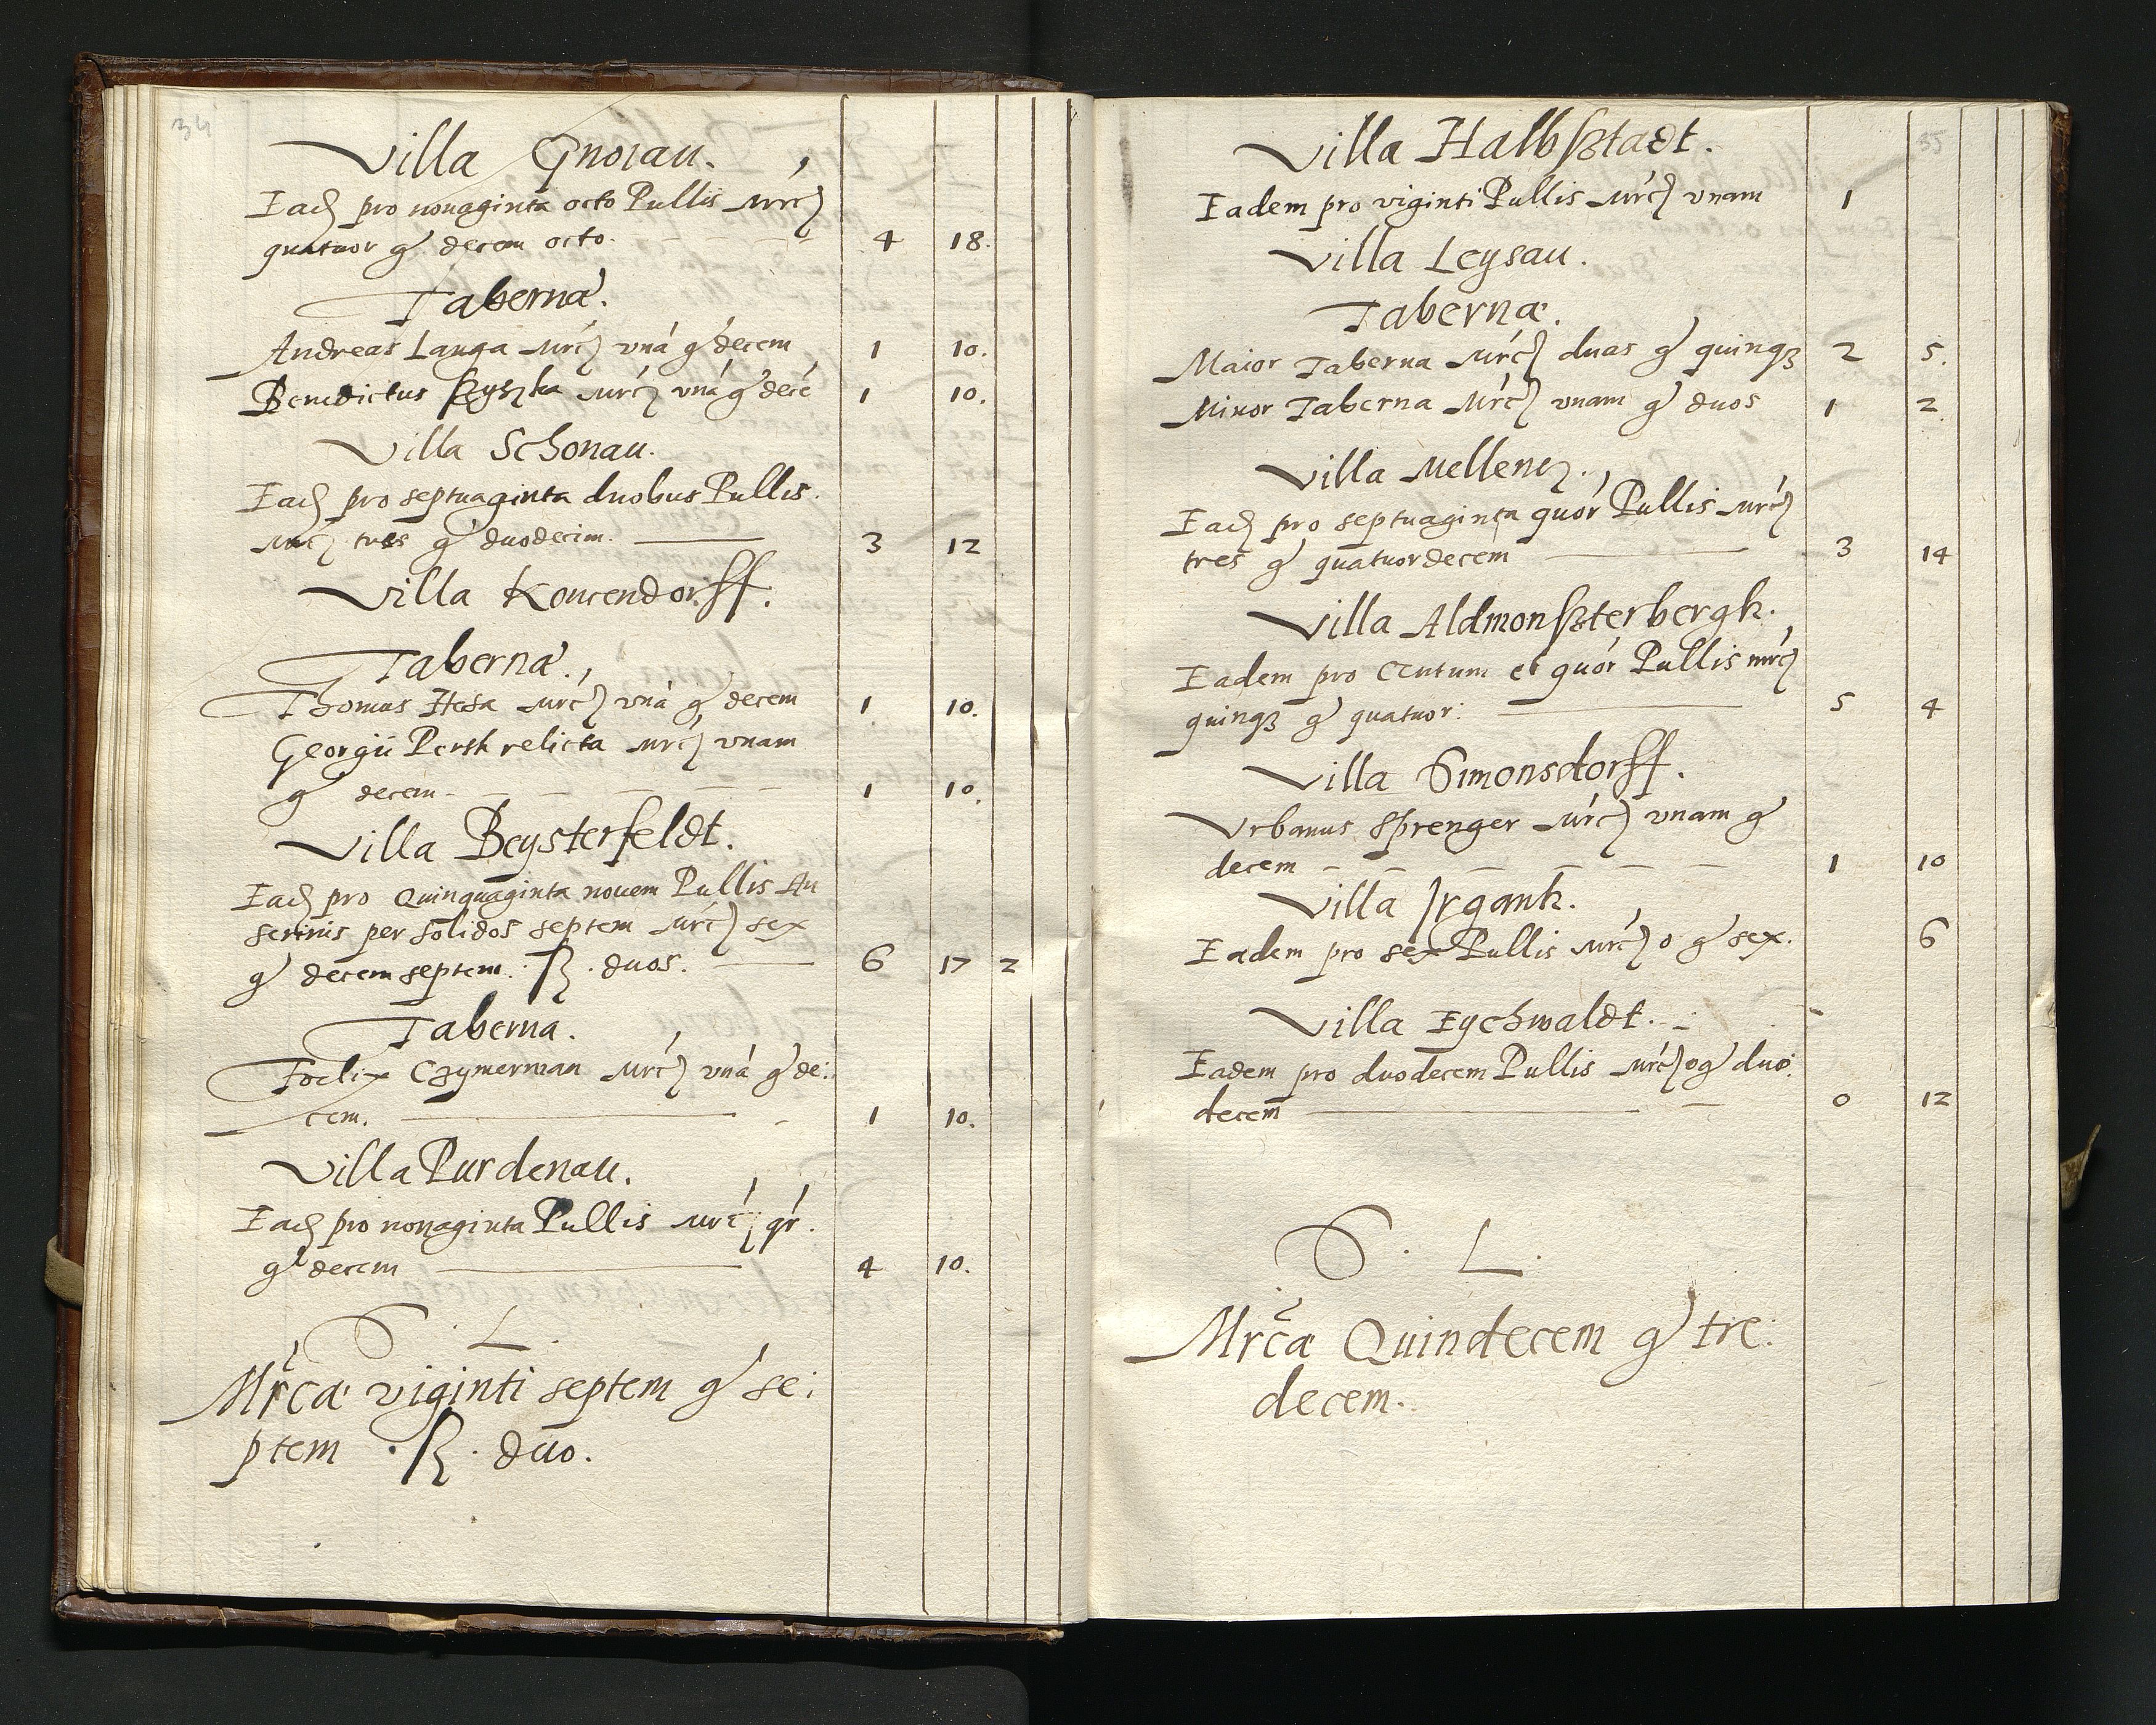 34
Villa Gnoiau.
Eadꝫ pro nonaginta octo Pullis Mrcꝫ
quatuor gͬ decem octo. 4 18.
Taberna.
Andreas Langa Mrcꝫ vná gͬ decem 1 10.
Benedictus Szyszka Mrcꝫ vná gͬ decē 1 10.
Villa Schonau.
Eadꝫ pro septuaginta duobus Pullis.
Mrcꝫ tres gͬ duodecim. 3 12
Villa Koncendorff.
Taberna.
Thomas Hesa Mrcꝫ vná gͬ decem 1 10.
Georgii Persk relicta Mrcꝫ vnam
gͬ decem 1 10.
Villa Beysterfeldt.
Eadꝫ pro Quinquaginta nouem Pullis An
serinis per solidos septem Mrcꝫ sex
gͬ decem septem. ẞ. duos. 6 17 2
Taberna.
Foelix Czymerman Mrcꝫ vná gͬ de:
cem. 1 10.
Villa Purdenau.
Eadꝫ pro nonaginta Pullis Mrcꝫ qr.
gͬ decem 4 10.
S. L.
Mrca viginti septem gͬ se:
ptem . ẞ. duo.
35
Villa Halbsztadt.
Eadem pro viginti Pullis Mrcꝫ vnam 1
Villa Leysau.
Tabernæ.
Maior Taberna Mrcꝫ duas gͬ quinqꝫ 2 5.
Minor Taberna Mrcꝫ vnam gͬ duos 1 2.
Villa Mellencz.
Eadꝫ pro septuaginta quor Pullis Mrcꝫ
tres gͬ quatuordecem 3 14
Villa Aldmonszterbergk.
Eadem pro Centum et quor Pullis mrcꝫ
quinqꝫ gͬ quatuor: 5 4
Villa Simonsdorff.
Vrbanus Sprenger Mrcꝫ vnam gͬ
decem 1 10
Villa Irgank.
Eadem pro sex Pullis Mrcꝫ o gͬ sex. 6
Villa Eychwaldt.
Eadem pro duodecem Pullis Mrcꝫ o gͬ duo:
decem 0 12
S. L.
Mrca Quindecem gͬ tre:
decem.